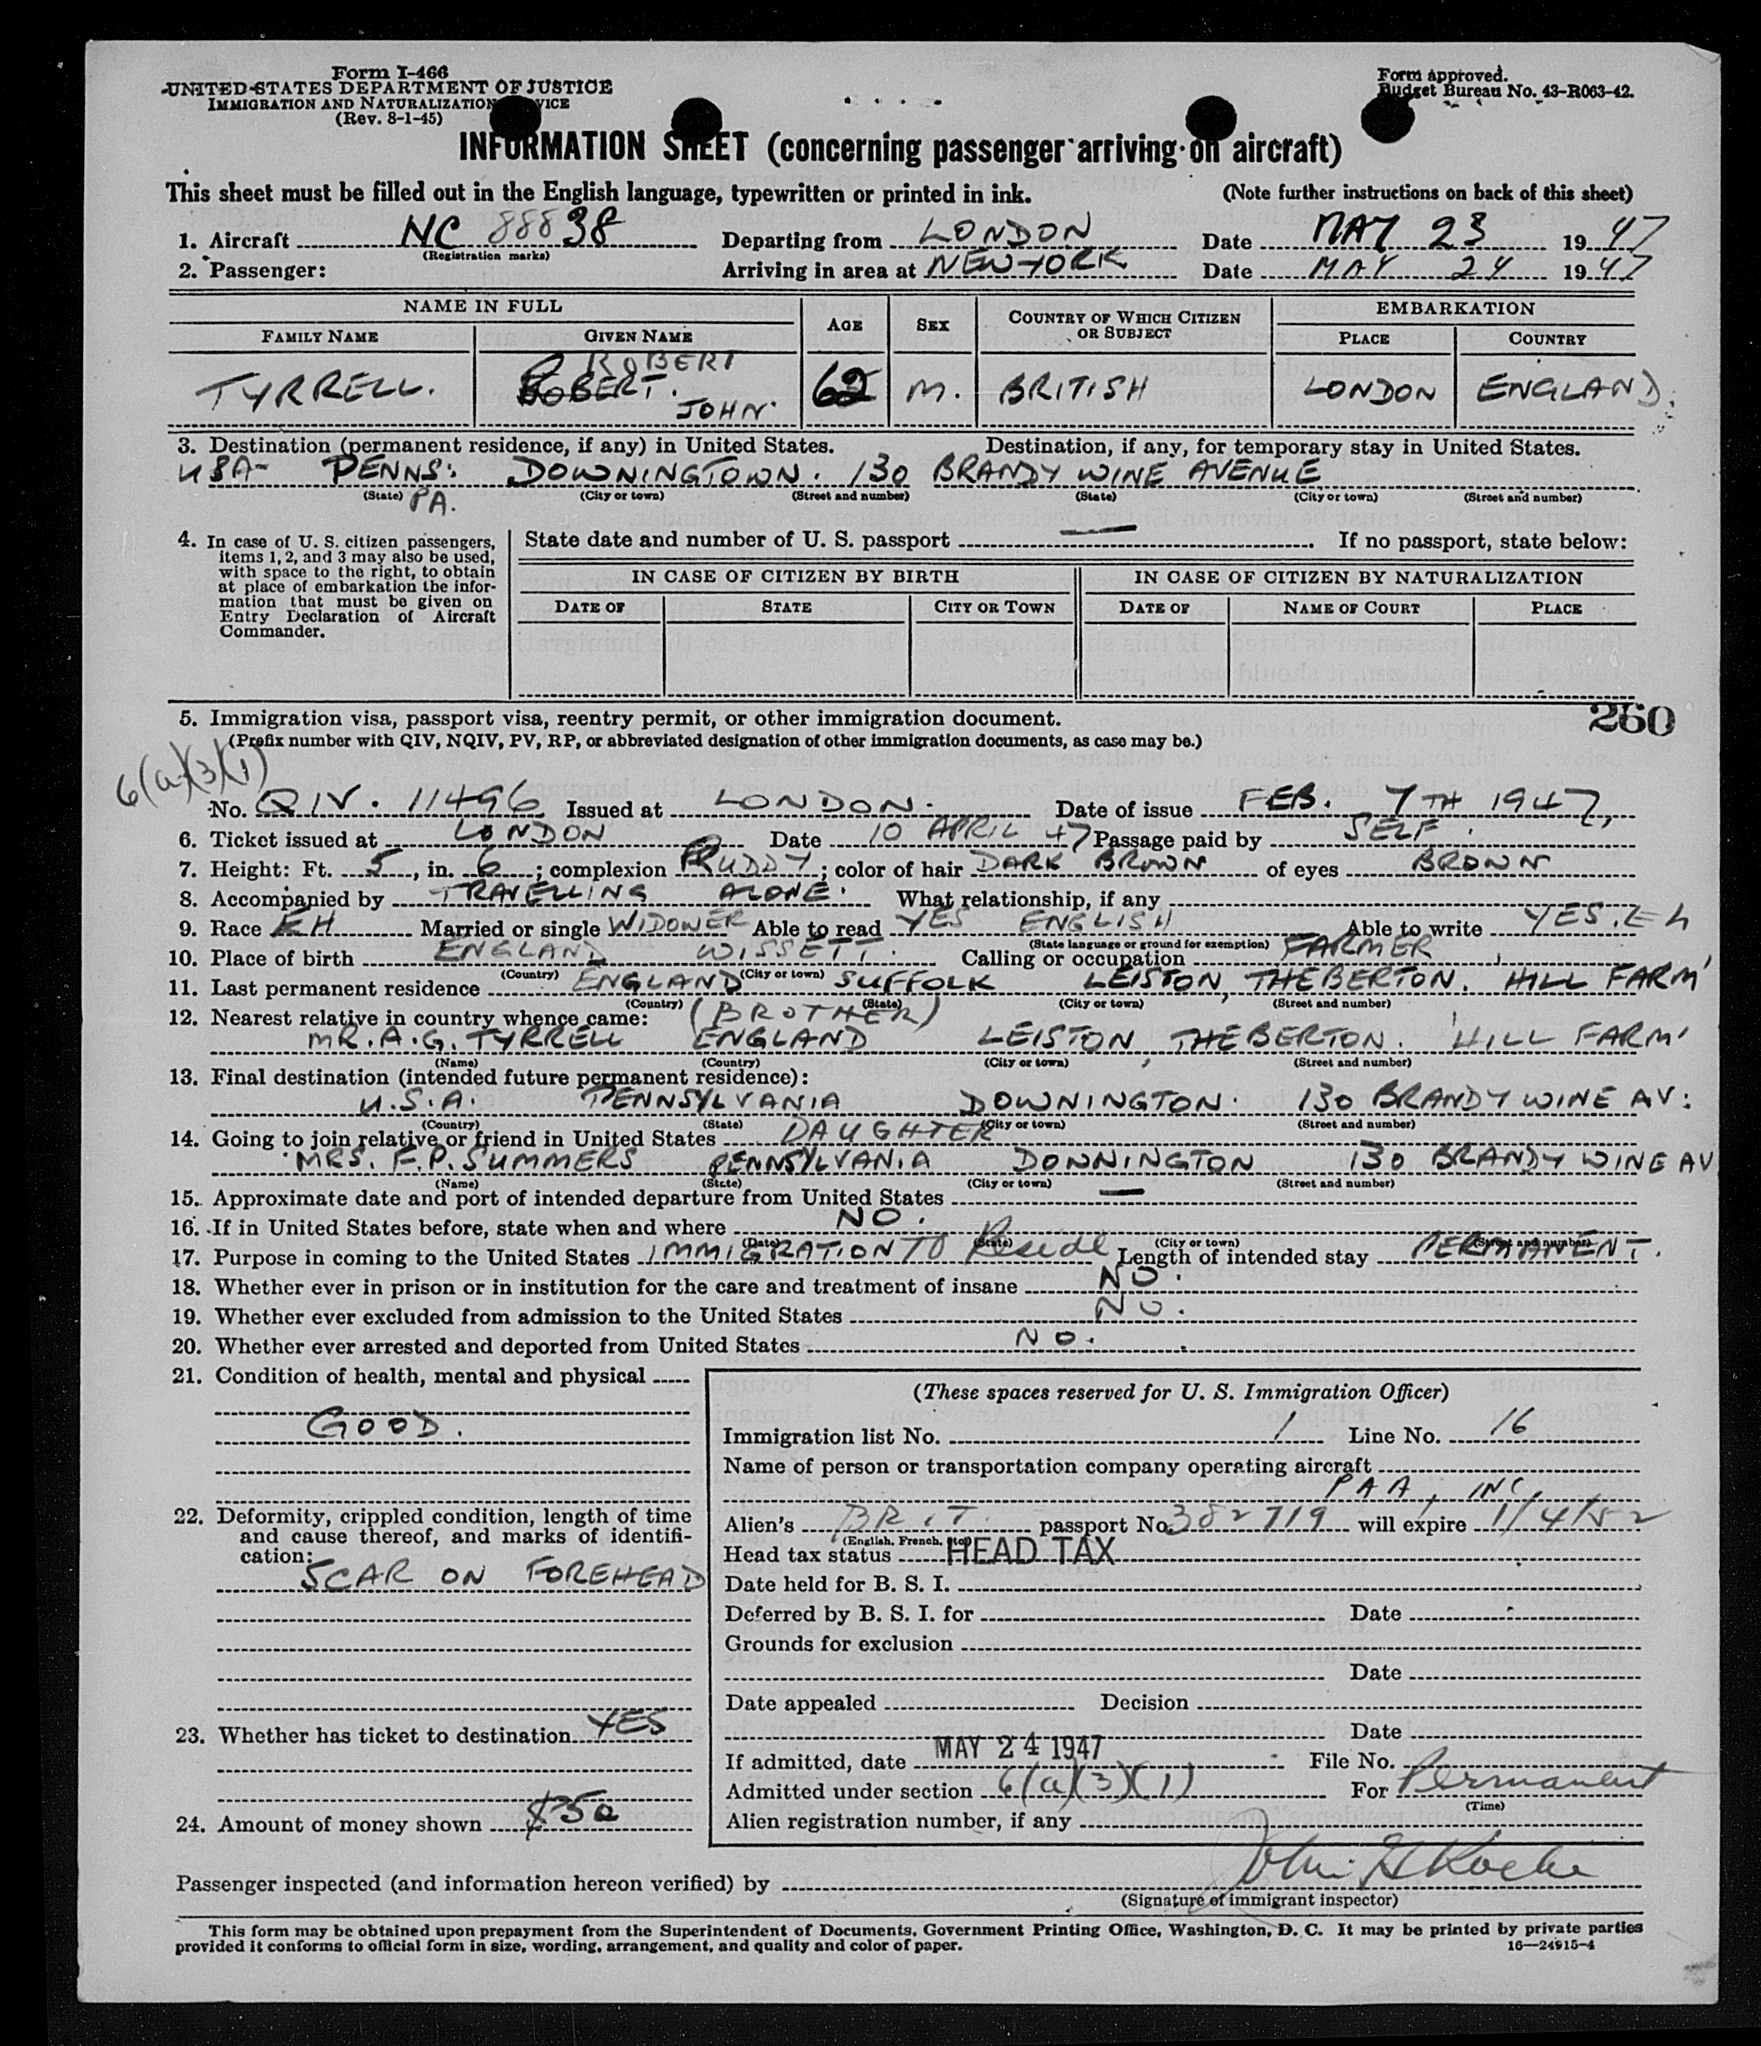 Form I-466
UNITED STATES DEPARTMENT OF JUSTICE
IMMIGRATION AND NATURALIZATION SERVICE
(Rev. 8-1-45)
Form approved.
Budget Bureau No. 43-R063-42.
INFORMATION SHEET (concerning passenger arriving on aircraft)
This sheet must be filled out in the English language, typewritten or printed in ink. (Note further instructions on back of this sheet)
1. Aircraft NC 88838 Departing from LONDON Date MAY 23 1947
(Registration marks)
2. Passenger: Arriving in area at NEW YORK Date MAY 24 1947
NAME IN FULL AGE SEX COUNTRY OF WHICH CITIZEN OR SUBJECT EMBARKATION
FAMILY NAME GIVEN NAME PLACE COUNTRY
ROBERT
TYRRELL. ROBERT. 62 M. BRITISH LONDON ENGLAND.
JOHN.
3. Destination (permanent residence, if any) in United States. Destination, if any, for temporary stay in United States.
USA- PENNS: DOWNINGTOWN. 130 BRANDY WINE AVENUE
(State) (City or town) (Street and number) (State) (City or town) (Street and number)
PA.
4. In case of U. S. citizen passengers, items 1, 2, and 3 may also be used, with space to the right, to obtain at place of embarkation the information that must be given on Entry Declaration of Aircraft Commander.
State date and number of U. S. passport — If no passport, state below:
IN CASE OF CITIZEN BY BIRTH IN CASE OF CITIZEN BY NATURALIZATION
DATE OF STATE CITY OR TOWN DATE OF NAME OF COURT PLACE
5. Immigration visa, passport visa, reentry permit, or other immigration document.
260
(Prefix number with QIV, NQIV, PV, RP, or abbreviated designation of other immigration documents, as case may be.)
6(a)(3)(1)
No. QIV. 11496 Issued at LONDON. Date of issue FEB. 7TH 1947,
6. Ticket issued at LONDON Date 10 APRIL 47 Passage paid by SELF.
7. Height: Ft. 5, in. 6; complexion RUDDY; color of hair DARK BROWN of eyes BROWN
8. Accompanied by TRAVELLING ALONE. What relationship, if any
9. Race EH Married or single WIDOWER Able to read YES ENGLISH Able to write YES.
(State language or ground for exemption)
10. Place of birth ENGLAND WISSETT. Calling or occupation FARMER
(Country) (City or town)
11. Last permanent residence ENGLAND SUFFOLK LEISTON, THEBERTON. HILL FARM'
(Country) (State) (City or town) (Street and number)
12. Nearest relative in country whence came: (BROTHER)
MR. A. G. TYRRELL ENGLAND LEISTON, THEBERTON. 'HILL FARM'
(Name) (Country) (City or town) (Street and number)
13. Final destination (intended future permanent residence):
U.S.A. PENNSYLVANIA DOWNINGTON. 130 BRANDY WINE AV:
(Country) (State) (City or town) (Street and number)
14. Going to join relative or friend in United States DAUGHTER
MRS. F.P. SUMMERS PENNSYLVANIA DOWNINGTON 130 BRANDY WINE AV
(Name) (State) (City or town) (Street and number)
15. Approximate date and port of intended departure from United States —
16. If in United States before, state when and where NO.
(Date) (State) (City or town) (Street and number)
17. Purpose in coming to the United States IMMIGRATION TO Reside Length of intended stay PERMANENT.
18. Whether ever in prison or in institution for the care and treatment of insane NO.
19. Whether ever excluded from admission to the United States NO.
20. Whether ever arrested and deported from United States NO.
21. Condition of health, mental and physical
GOOD.
22. Deformity, crippled condition, length of time and cause thereof, and marks of identification:
SCAR ON FOREHEAD
23. Whether has ticket to destination YES
24. Amount of money shown $50
(These spaces reserved for U. S. Immigration Officer)
Immigration list No. 1 Line No. 16
Name of person or transportation company operating aircraft
PAA, INC.
Alien's BRIT. passport No. 382719 will expire 1/4/52
(English, French, etc.)
Head tax status HEAD TAX
Date held for B. S. I.
Deferred by B. S. I. for Date
Grounds for exclusion
Date
Date appealed Decision
Date
If admitted, date MAY 24 1947 File No.
Admitted under section 6(a)(3)(1) For Permanent
(Time)
Alien registration number, if any
Passenger inspected (and information hereon verified) by John
(Signature of immigrant inspector)
This form may be obtained upon prepayment from the Superintendent of Documents, Government Printing Office, Washington, D. C. It may be printed by private parties
provided it conforms to official form in size, wording, arrangement, and quality and color of paper. 16—24915-4